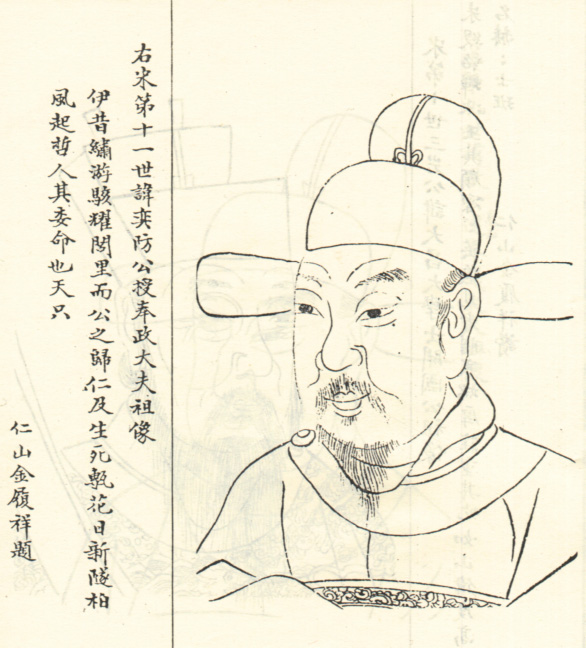 右宋第十一世諱奕防公授奉政大夫祖像
伊昔繡游駭耀閭里而公之歸仁及生死甎花日新隧柏
風起哲人其委命也天只
仁山金履祥題